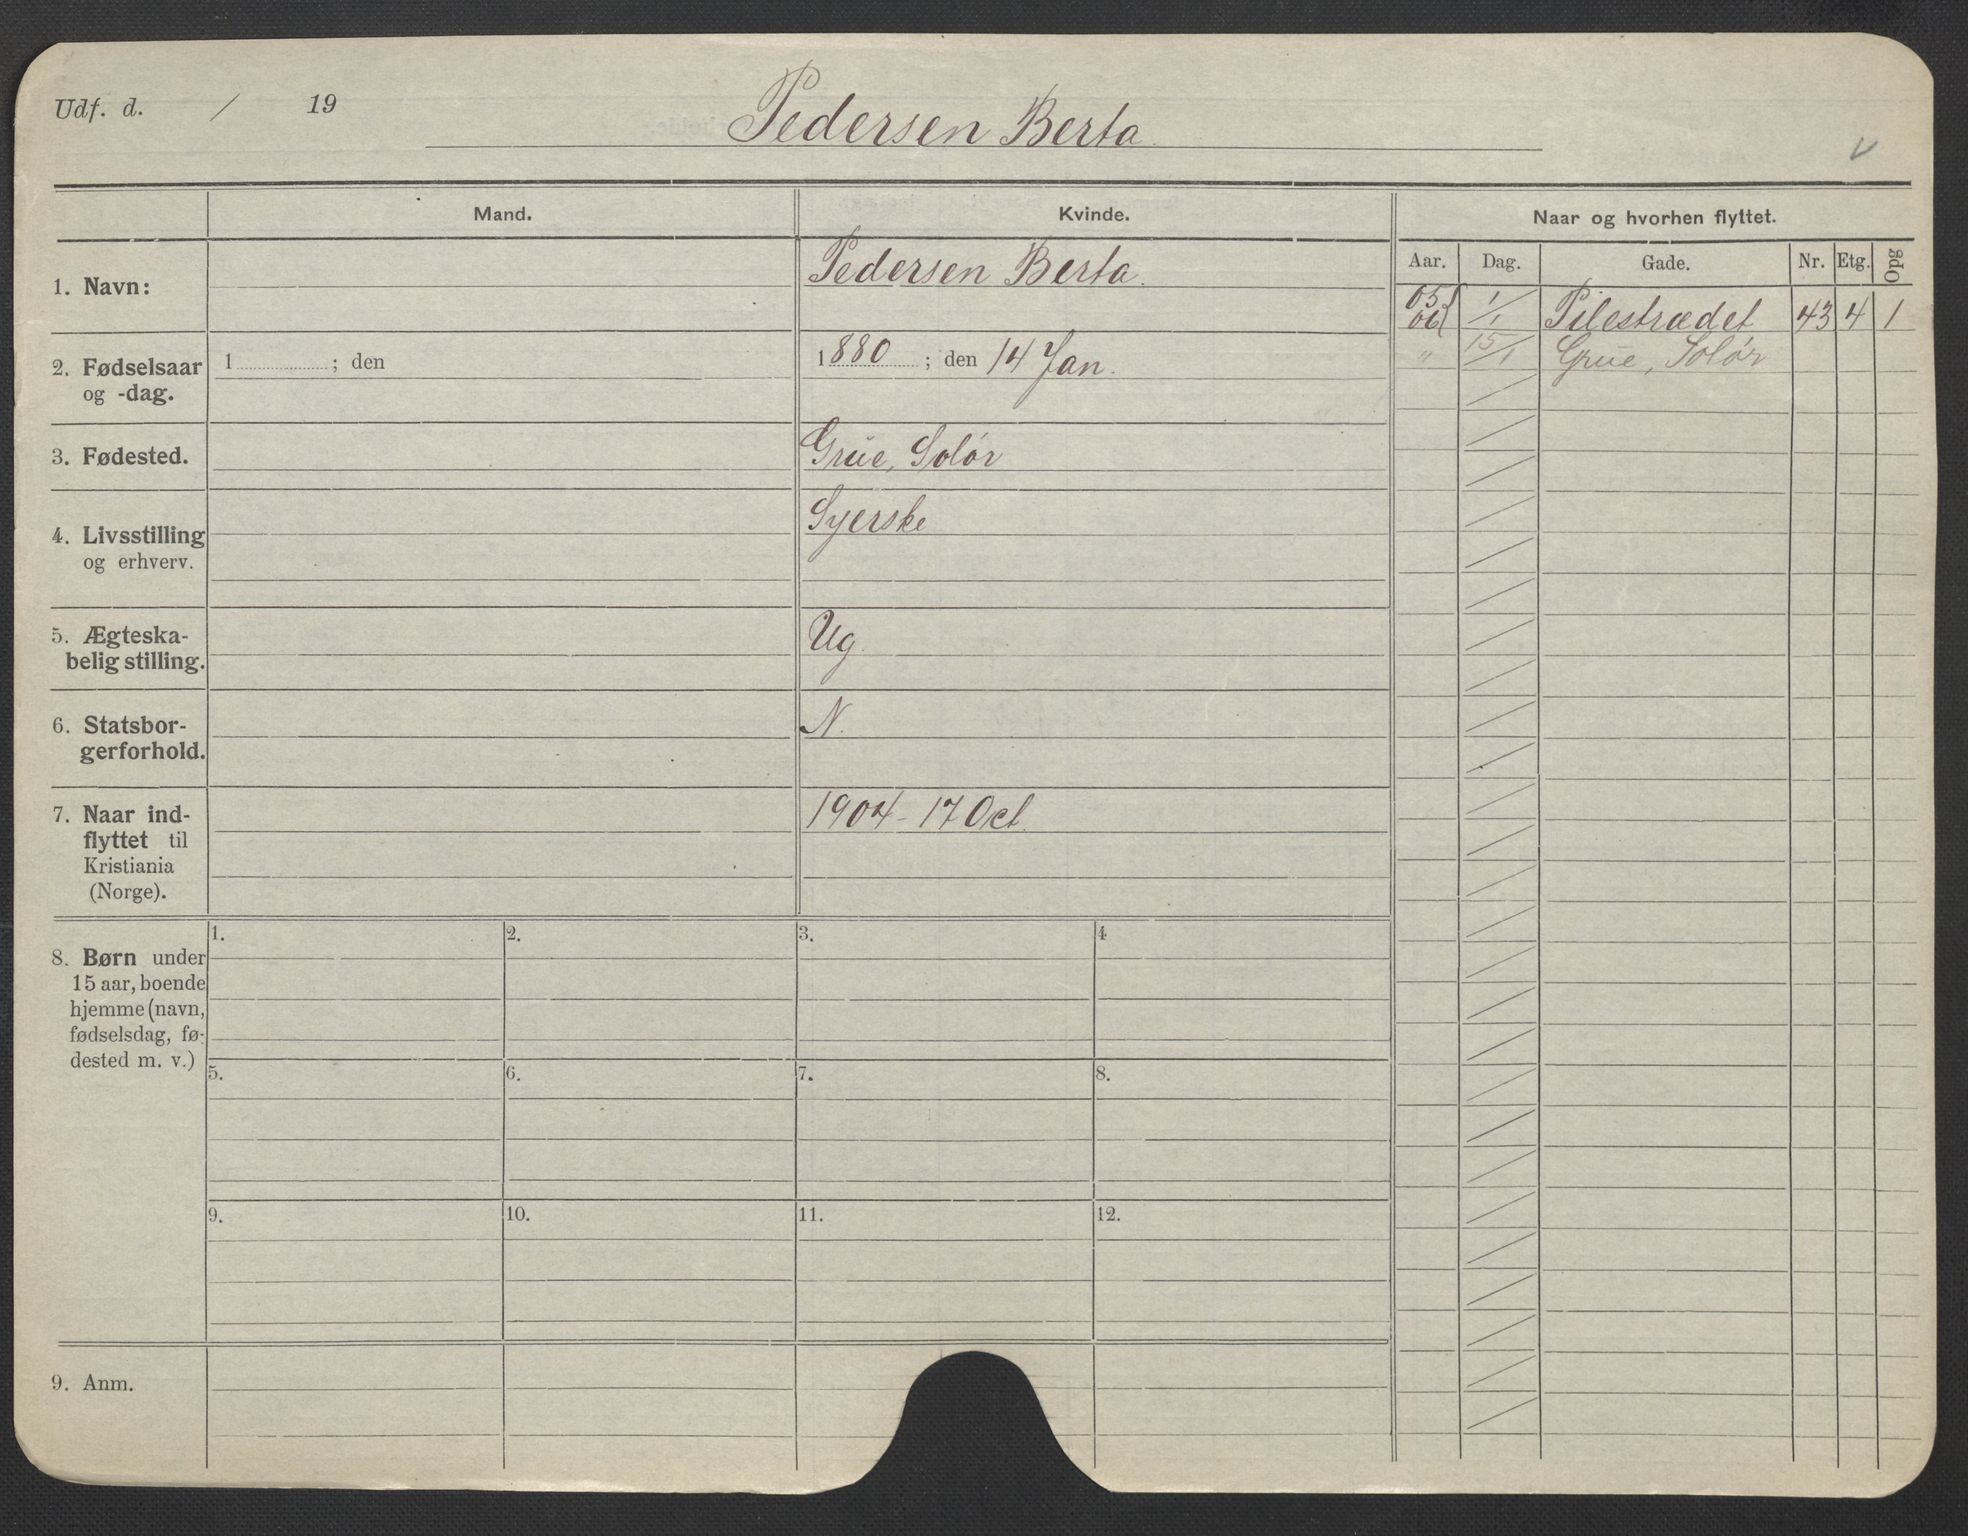 Udf. d. / 19
Pedersen Berta
Mand.
Kvinde.
Naar og hvorhen flyttet.
Aar. Dag. Gade. Nr. Etg. Opg
1. Navn:
Pedersen Berta.
05 1/1 Pilestrædet 43 4 1
06
2. Fødselsaar
og -dag.
1 ; den
1880 ; den 14 Jan.
" 15/1 Grue, Solør
3. Fødested.
Grue, Solør
4. Livsstilling
og erhverv.
Syerske
5. Ægteska-
belig stilling.
Ug.
6. Statsbor-
gerforhold.
N.
7. Naar ind-
flyttet til
Kristiania
(Norge).
1904 - 17 Oct.
8. Børn under
15 aar, boende
hjemme (navn,
fødselsdag, fø-
dested m. v.)
1. 2. 3. 4
5. 6. 7. 8.
9. 10. 11. 12.
9. Anm.